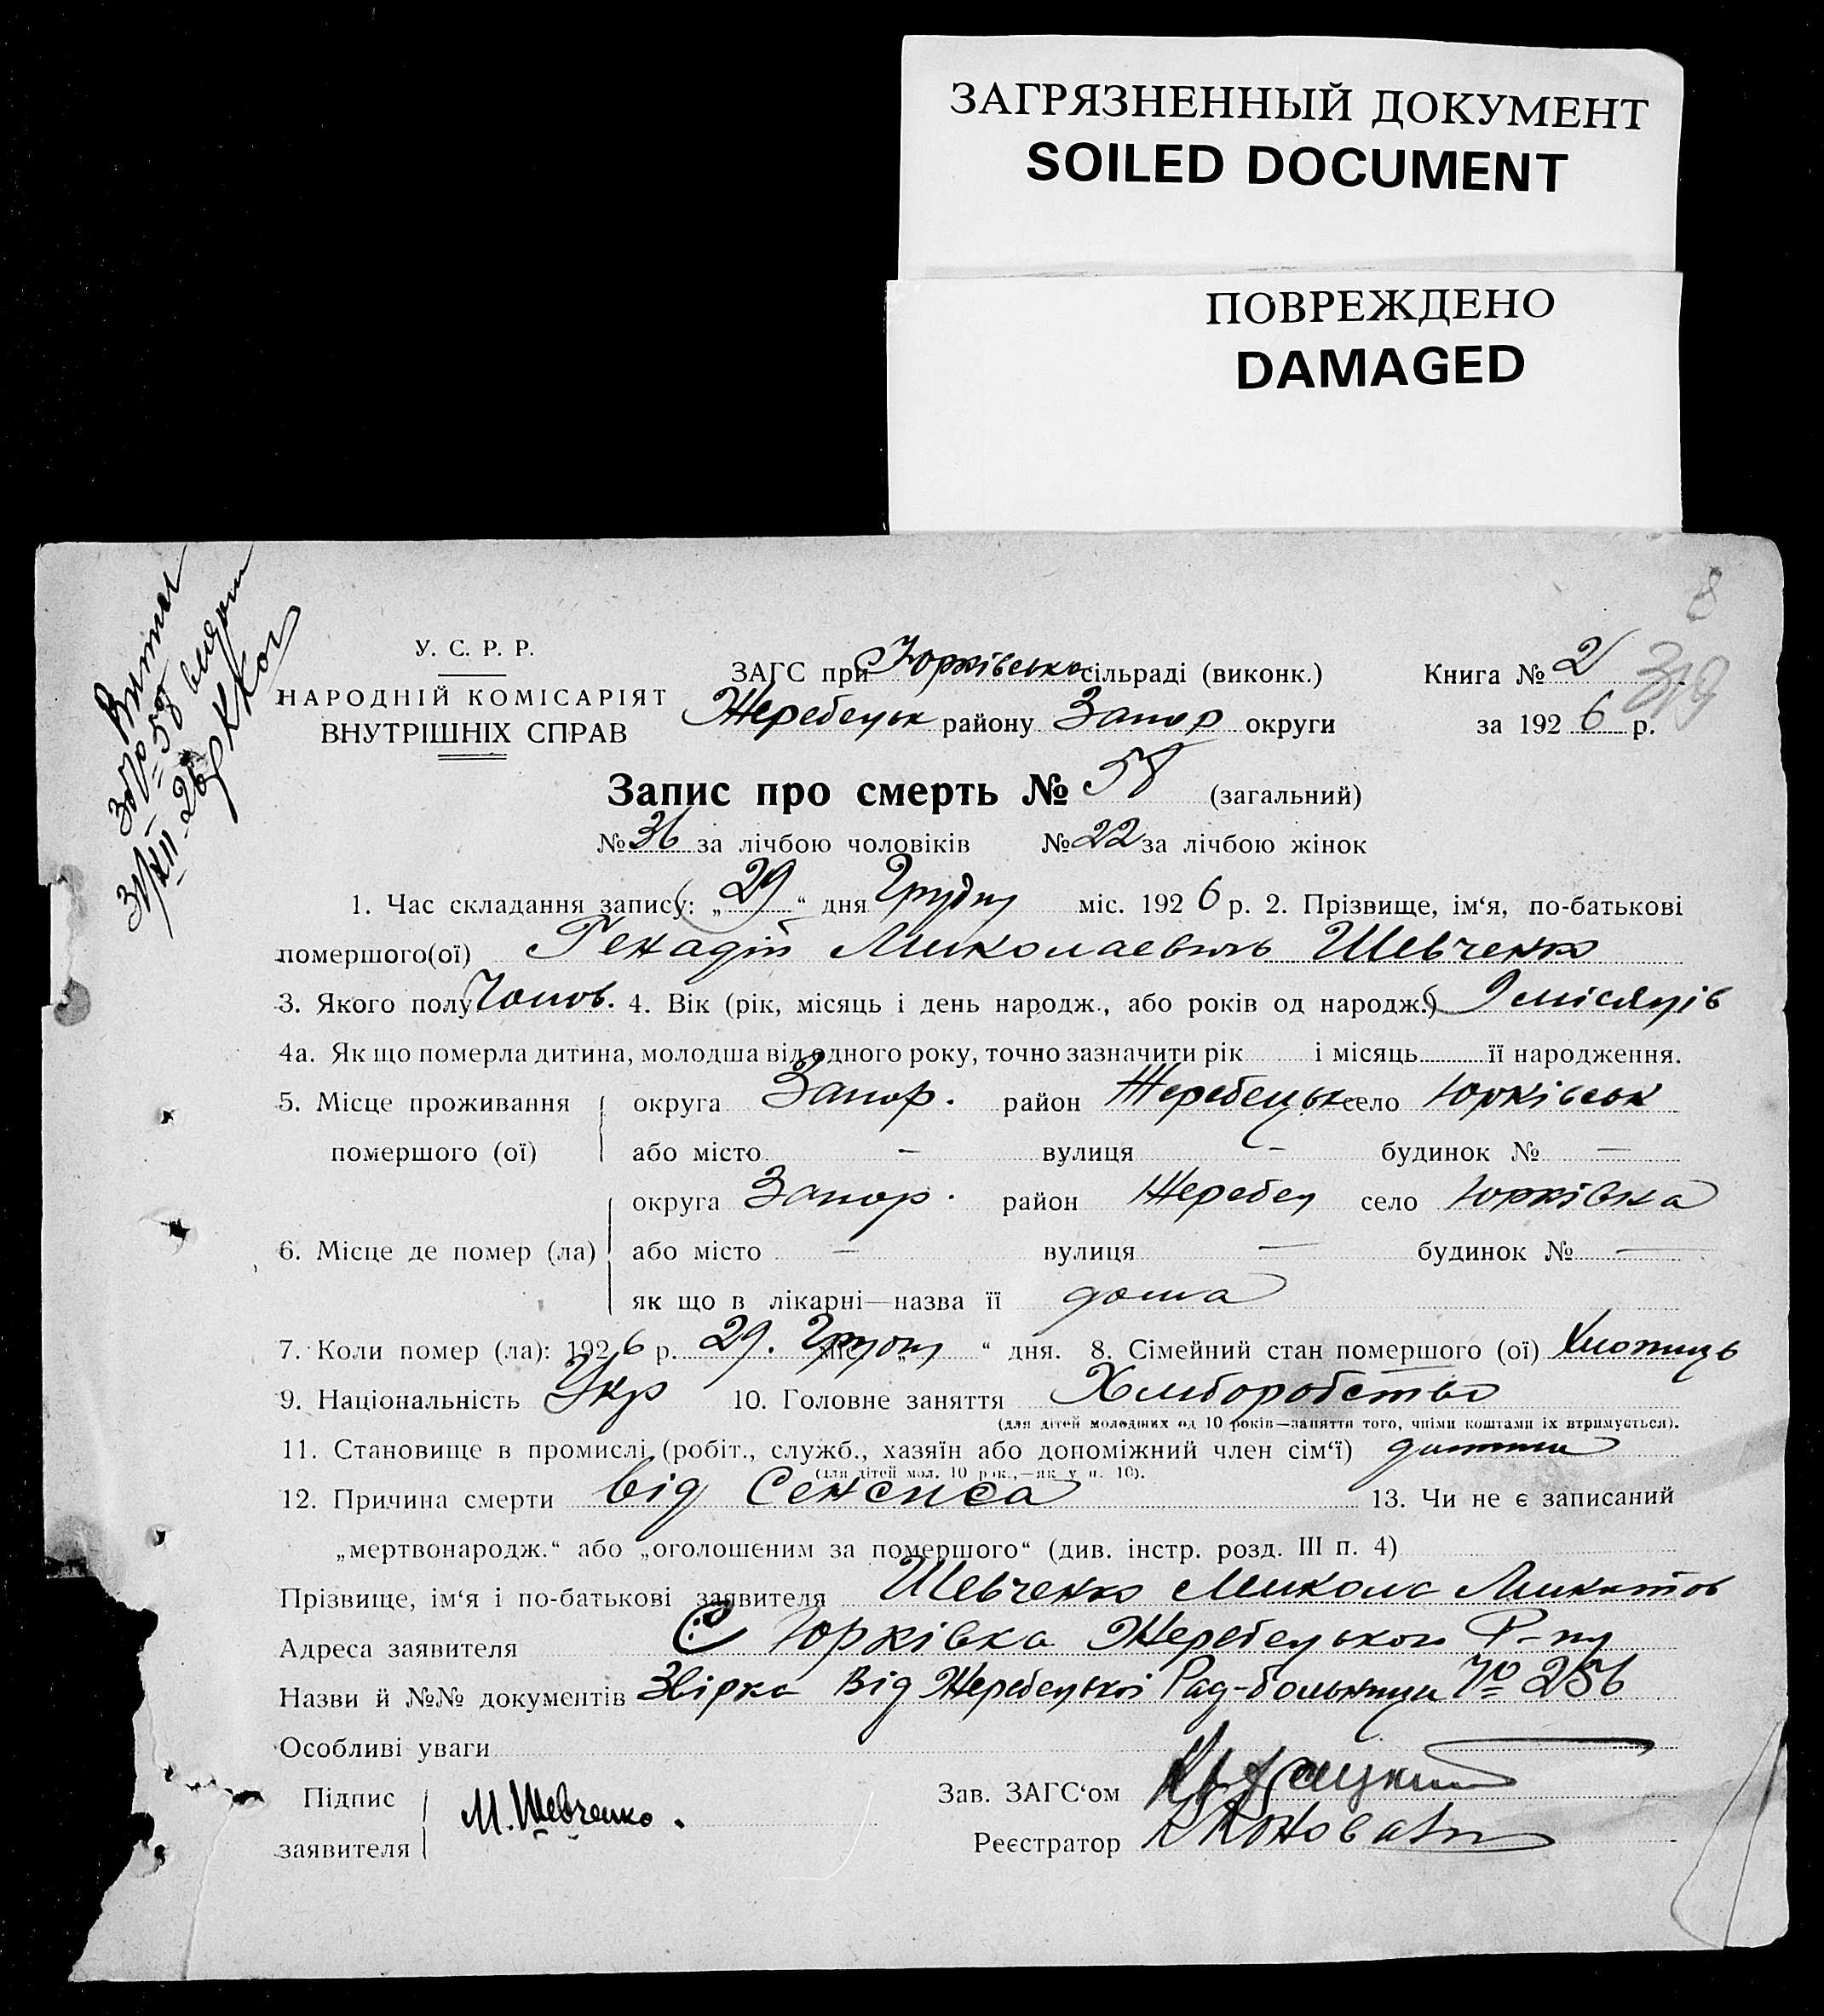 ЗАГРЯЗНЕННЫЙ ДОКУМЕНТ
SOILED DOCUMENT
ПОВРЕЖДЕНО
DAMAGED
8
319
У. С. Р. Р.
НАРОДНІЙ КОМІСАРІЯТ
ВНУТРІШНІХ СПРАВ
ЗАГС при Юрківсько сільраді (виконк.) Книга № 2
Жеребецьк району Запор округи за 1926 р.
Запис про смерть № 58 (загальний)
№ 36 за лічбою чоловіків № 22 за лічбою жінок
1. Час складання запису: „29“ дня Грудня міс. 1926 р. 2. Прізвище, ім‘я, по-батькові
помершого(ої) Генадій Миколаевичь Шевченко
3. Якого полу Чолов. 4. Вік (рік, місяць і день народж., або років од народж.) 9 місяців
4а. Як що померла дитина, молодша від одного року, точно зазначити рік і місяць її народження.
5. Місце проживання округа Запор. район Жеребецьк село Юрківськ
помершого (ої) або місто — вулиця — будинок № —
округа Запор. район Жеребец село Юрківка
6. Місце де помер (ла) або місто — вулиця — будинок № —
як що в лікарні—назва її дома
7. Коли помер (ла): 1926 р. 29. Грудня міс. „ “ дня. 8. Сімейний стан помершого (ої) Хлопиць
9. Національність Укр 10. Головне заняття Хліборобство
(для дітей молодших од 10 років—заняття того, чиїми коштами їх втримується).
11. Становище в промислі (робіт., служб., хазяїн або допоміжний член сім‘ї) дитина
(для дітей мол. 10 рок.,—як у п. 10).
12. Причина смерти від Сенсиса 13. Чи не є записаний
„мертвонародж.“ або „оголошеним за помершого“ (див. інстр. розд. III п. 4)
Прізвище, ім‘я і по-батькові заявителя Шевченко Микола Микитов
Адреса заявителя С Юрківка Жеребецького Р-ну
Назви й №№ документів Звірка Від Жеребецької Рад-больници № 256
Особливі уваги
Підпис заявителя М. Шевченко.
Зав. ЗАГС‘ом
Реєстратор